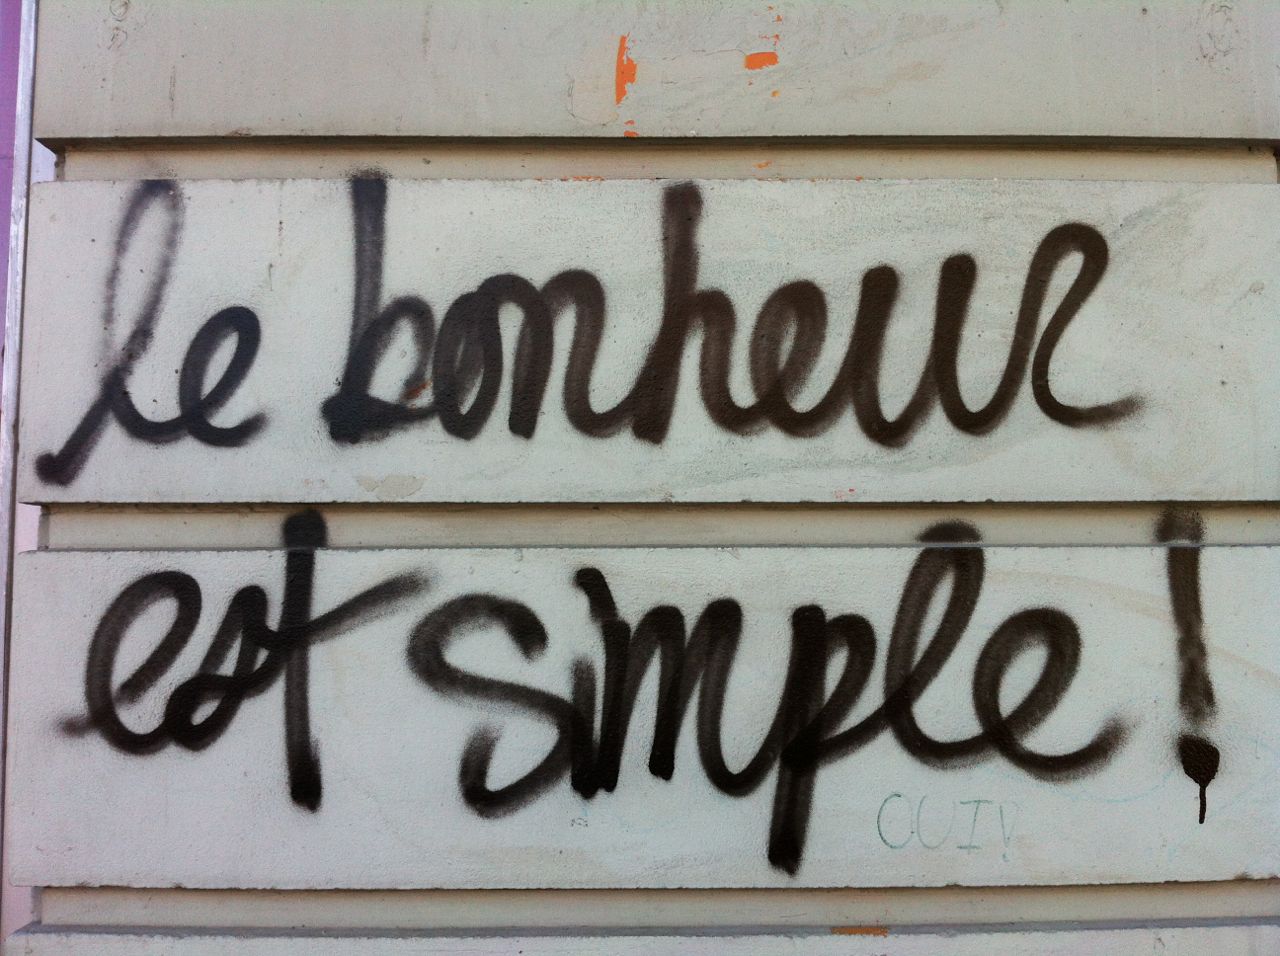 le bonheur
est simple!
OUI!